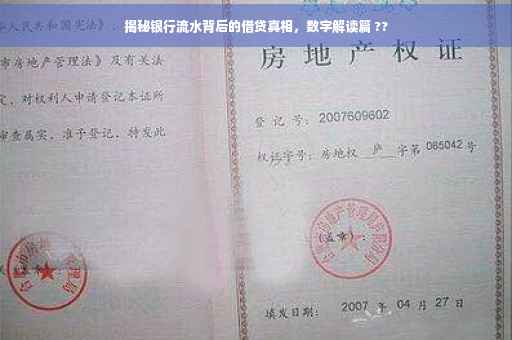 揭秘银行流水背后的借贷真相，数字解读篇 ??
人民共和国宪法》、
市房地产管理法》及有关法
定，对权利人申请登记本证所
审查属实，准予登记，特发此
房地产权证
登记号：2007609602
权证字号：房地权 庐 字第 085042 号
（盖章）：
填发日期： 2007 年 04 月 27 日